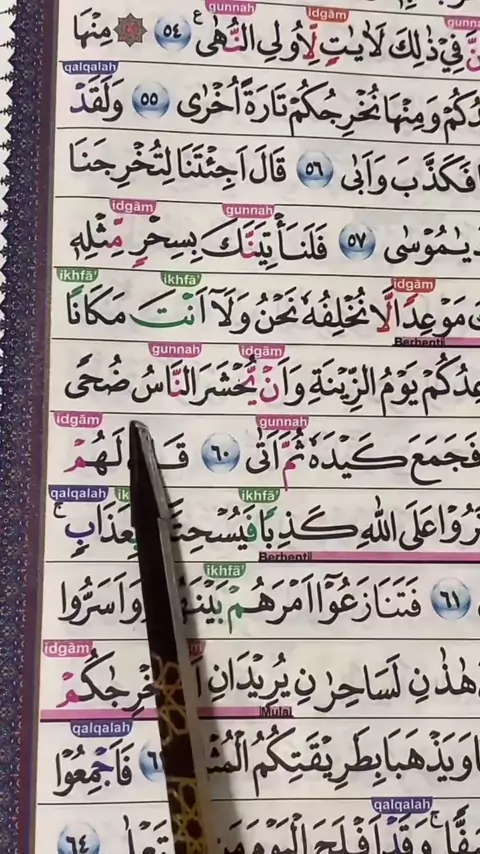 gunnah idgām
فِيْ ذٰلِكَ لَاٰيٰتٍ لِّاُولِى النُّهٰى ٥٤ مِنْهَا
qalqalah
وَمِنْهَا نُخْرِجُكُمْ تَارَةً اُخْرٰى ٥٥ وَلَقَدْ
فَكَذَّبَ وَاَبٰى ٥٦ قَالَ اَجِئْتَنَا لِتُخْرِجَنَا
idgām gunnah
يٰمُوْسٰى ٥٧ فَلَنَأْتِيَنَّكَ بِسِحْرٍ مِّثْلِهٖ
ikhfā' ikhfā' idgām
مَوْعِدًا لَّا نُخْلِفُهٗ نَحْنُ وَلَآ اَنْتَ مَكَانًا
Berhenti
gunnah idgām
يَوْمُ الزِّيْنَةِ وَاَنْ يُّحْشَرَ النَّاسُ ضُحًى
idgām gunnah
فَجَمَعَ كَيْدَهٗ ثُمَّ اَتٰى ٦٠ لَهُمْ
qalqalah ikhfā'
عَلَى اللّٰهِ كَذِبًا بِعَذَابٍ
Berhenti
ikhfā'
٦١ فَتَنَازَعُوْٓا اَمْرَهُمْ وَاَسَرُّوا
idgām
هٰذٰنِ لَسَاحِرٰنِ يُرِيْدَانِ
Mulai
qalqalah
وَيَذْهَبَا بِطَرِيْقَتِكُمُ فَاَجْمِعُوْا
qalqalah
وَقَدْ اَفْلَحَ الْيَوْمَ ٦٤